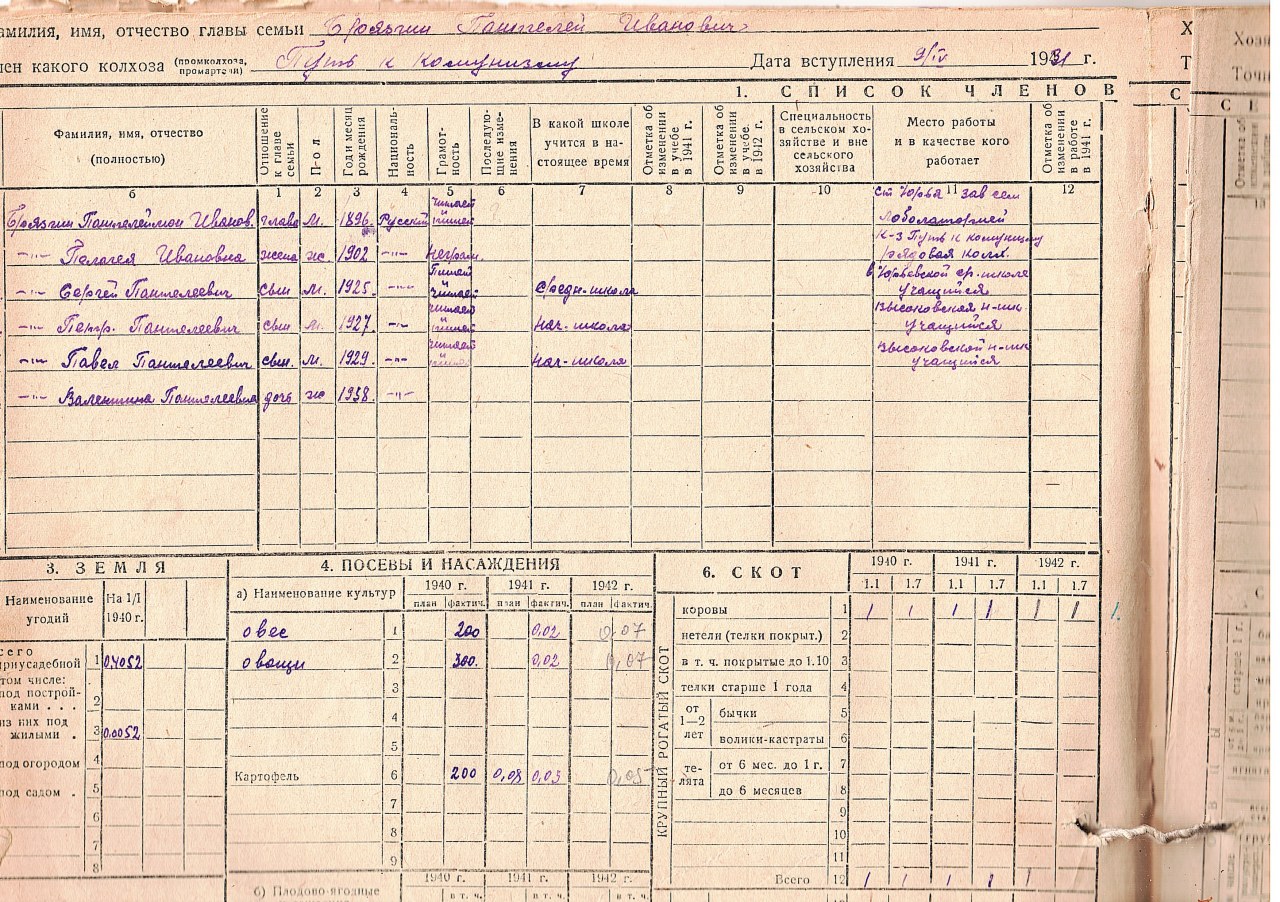 амилия, имя, отчество главы семьи Брязгин Пантелей Иванович
лен какого колхоза (промколхоза, промартели) Путь к Комунизму Дата вступления 9/IV 1931 г.
1. СПИСОК ЧЛЕНОВ
Фамилия, имя, отчество (полностью) Отношение к главе семьи Пол Год и месяц рождения Национальность Грамотность Последующие изменения В какой школе учится в настоящее время Отметка об изменении в учебе в 1941 г. Отметка об изменении в учебе в 1942 г. Специальность в сельском хозяйстве и вне сельского хозяйства Место работы и в качестве кого работает Отметка об изменении в работе в 1941 г.
б 1 2 3 4 5 6 7 8 9 10 11 12
Брязгин Пантелеймон Иванов. глава м. 1896 Русский читает пишет ст Юрья зав сем лоболаторией
-"- Пелагея Ивановна жена ж. 1902 -"- неграм. к-з Путь к комунизму рядовая колх.
-"- Сергей Пантелеевич сын м. 1925. -"- пишет читает средн-школа в Юрьевской ср. школе учащийся
-"- Петр. Пантелеевич сын м. 1927 -"- читает пишет нач-школа Высоковская н-шк учащийся
-"- Павел Пантелеевич сын. м. 1929. -"- читает пишет нач-школа Высоковской н-шк учащийся
-"- Валентина Пантелеевна дочь ж 1938. -"-
3. ЗЕМЛЯ
Наименование угодий На 1/I 1940 г.
сего приусадебной 1 0,4052
том числе:
под построй-
ками . . . 2
из них под
жилыми . 3 0.0052
под огородом 4
под садом . 5
6
7
8
4. ПОСЕВЫ И НАСАЖДЕНИЯ
а) Наименование культур 1940 г. 1941 г. 1942 г.
план фактич. план фактич. план фактич.
овес 1 200 0,02 0,07
овощи 2 300. 0,02 0,07
3
4
5
Картофель 6 200 0,08 0,03 0,05
7
8
9
1940 г. 1941 г. 1942 г.
б) Плодово-ягодные в т. ч. в т. ч. в т. ч.
6. СКОТ
1940 г. 1941 г. 1942 г.
1.1 1.7 1.1 1.7 1.1 1.7
КРУПНЫЙ РОГАТЫЙ СКОТ
коровы 1 1 1 1 1 1 1 1.
нетели (телки покрыт.) 2
в т. ч. покрытые до 1.10 3
телки старше 1 года 4
от 1—2 лет бычки 5
волики-кастраты 6
телята от 6 мес. до 1 г. 7
до 6 месяцев 8
9
10
11
Всего 12 1 1 1 1 1
Х
Т
С
Хозя
Точн